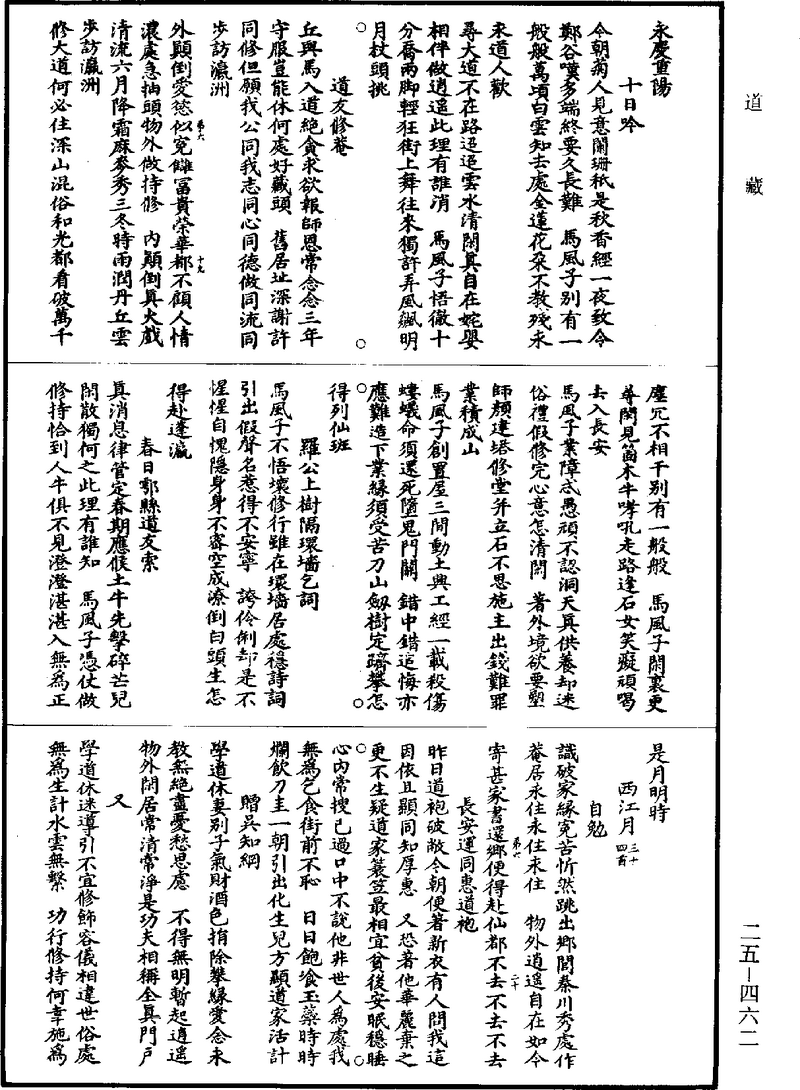 道藏
永慶重陽
十日吟
今朝菊人見意闌珊秖是秋香經一夜致令
鄭谷嘆多端終要久長難　馬風子別有一
般般萬頃白雲知去處金蓮花朶不教殘未
來道人歡
尋大道不在路迢迢雲水清閑真自在姹嬰
相伴做逍遥此理有誰消　馬風子悟徹十
分喬兩脚輕狂街上舞往來獨許弄風飆明
月杖頭挑
道友修菴
丘與馬入道絶貪求欲報師恩常念念三年
守服豈能休何處好藏頭　舊居址深謝許
同修但願我公同我志同心同德做同流同
步訪瀛洲
外顛倒愛慾似冤讎冨貴榮華都不顧人情
濃處急抽頭物外做持修　内顛倒真火戲
清流六月降霜麻麥秀三冬時雨潤丹丘雲
步訪瀛洲
修大道何必住深山混俗和光都看破萬千
塵冗不相干別有一般般　馬風子閑裏更
尋閑見箇木牛哮吼走路逢石女笑癡頑喝
去入長安
馬風子業障忒愚頑不認洞天真供養却迷
俗禮假修完心意怎清閑　著外境欲要塑
師顏建塔修堂并立石不思施主出錢難罪
業積成山
馬風子創置屋三間動土興工經一載殺傷
螻蟻命須還死墮鬼門關　錯中錯追悔亦
應難造下業緣須受苦刀山劔樹定躋攀怎
得列仙班
羅公上樹隔環墻乞詞
馬風子不悟壞修行雖在環墻居處穩詩詞
引出假聲名惹得不安寧　誇伶俐却是不
惺惺自愧隱身身不密空成潦倒白頭生怎
得赴蓬瀛
春日鄠縣道友索
真消息律管定春期應候土牛先擊碎芒兒
閑散獨何之此理有誰知　馬風子憑仗做
修持恰到人牛俱不見澄澄湛湛入無為正
是月明時
西江月三十四首
自勉
識破家緣冤苦忻然跳出鄉閭秦川秀處作
菴居永住永住永住　物外逍遥自在如今
寄甚家書還鄉便得赴仙都不去不去不去
長安運同惠道袍
昨日道袍破敝今朝便著新衣有人問我這
因依且顯同知厚惠　又恐著他華麗棄之
更不生疑道家蓑笠最相宜貧後安眠穩睡
心内常搜已過口中不說他非世人為處我
無為乞食街前不恥　日日飽飡玉藥時時
爛飲刀圭一朝引出化生兒方顯道家活計
贈吳知綱
學道休妻別子氣財酒色捐除攀緣愛念未
教無絶盡憂愁思慮　不得無明暫起逍遥
物外閑居常清常淨是功夫相稱全真門戶
又
學道休迷導引不宜修飾容儀相違世俗處
無為生計水雲無繫　功行修持何韋施為
二五－四六二